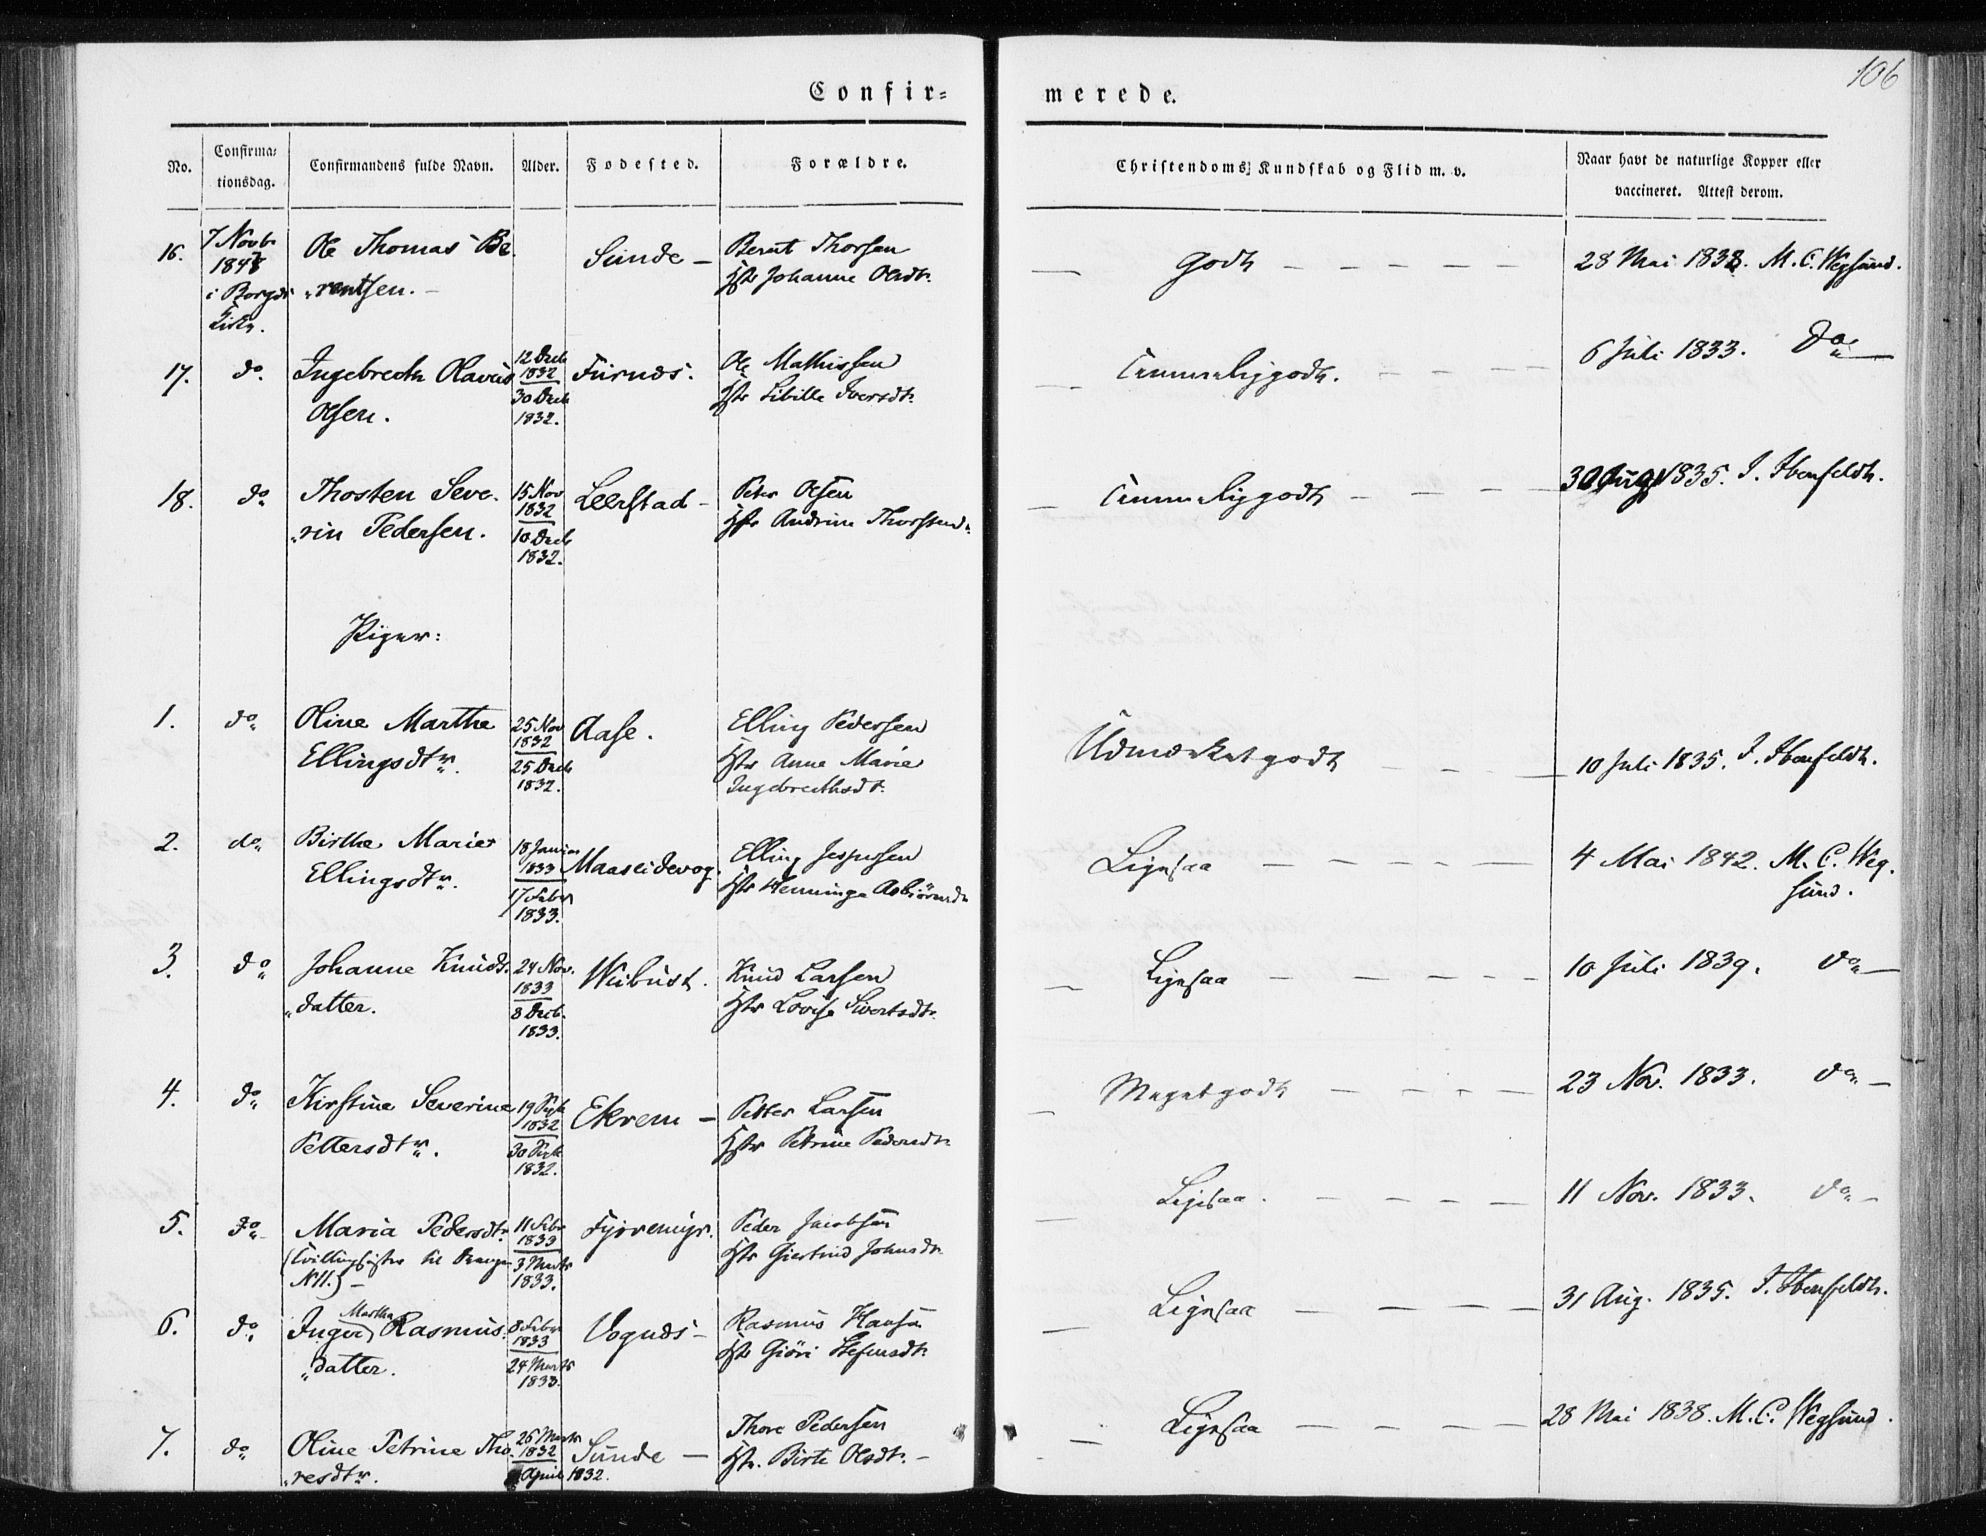 106
Confir= merede.
No. Confirma= tionsdag. Confirmandens fulde Navn. Alder. Fødested. Forældre. Christendoms Kundskab og Flid m. v. Naar havt de naturlige Kopper eller vaccineret. Attest derom.
16. 7 Novb. 1847 i Borgds Kirke. Ole Thomas Be- rentsen. Sunde — Bernt Thorsen Hstr Johanne Olsdtr. Godt 28 Mai 1838. M. C. Wegsund.
17. do. Ingebrecth Olavus Olsen. 12 Decb 1832 30 Decb 1832. Furnæs. Ole Mathissen Hstr Sibille Iversdtr. Temmelig godt. 6 Juli 1833. do
18. do Thosten Seve- rin Pedersen. 15 Nov 1832 10 Decb 1832. Leerstad — Peter Olsen Hstr Andrine Thorstensd. Temmelig godt 30 Aug 1835. J. Ibenfeldt.
Piger:
1. do Oline Marthe Ellingsdtr. 25 Nov 1832 25 Decb 1832. Aase. Elling Pedersen Hstr Anne Marie Ingebrecthsdtr. Udmærket godt 10 Juli 1835. J. Ibenfeldt.
2. do Birthe Marie Ellingsdtr. 18 Januar 1833 17 Febr 1833. Maaseidevog. Elling Jespersen Hstr Henninge Asbiörnsd Ligesaa 4 Mai 1842. M. C. Weg- sund.
3. do Johanne Knuds- datter. 24 Nov. 1833 8 Decb. 1833. Weibust. Knud Larsen Hstr Lovise Sivertsdtr. Ligesaa 10 Juli 1839. do
4. do Kirstine Severine Pettersdtr. 19 Sept 1832 30 Sept 1832. Ekrem — Petter Larsen Hstr Petrine Pedersdtr. Meget godt 23 Nov. 1833. do
5. do Maria Pedersdtr. (Tvillingsøster til Drenge N 11.) — 11 Febr 1833 3 Marts 1833. Fyrremyr. Peder Jacobsen Hstr Giertrud Johnsdtr. Ligesaa. 11 Nov. 1833. do
6. do Inger Martha Rasmus- datter. 8 Febr 1833 24 Marts 1833. Vognæs — Rasmus Hansen Hstr Giöri Stefensdtr. Ligesaa 31 Aug. 1835. J. Ibenfeldt.
7. do Oline Petrine Tho- resdtr. 26 Marts 1832 April 1832. Sunde — Thore Pedersen Hstr. Birte Olsdtr. — Ligesaa 28 Mai 1838. M. C. Wegsund.